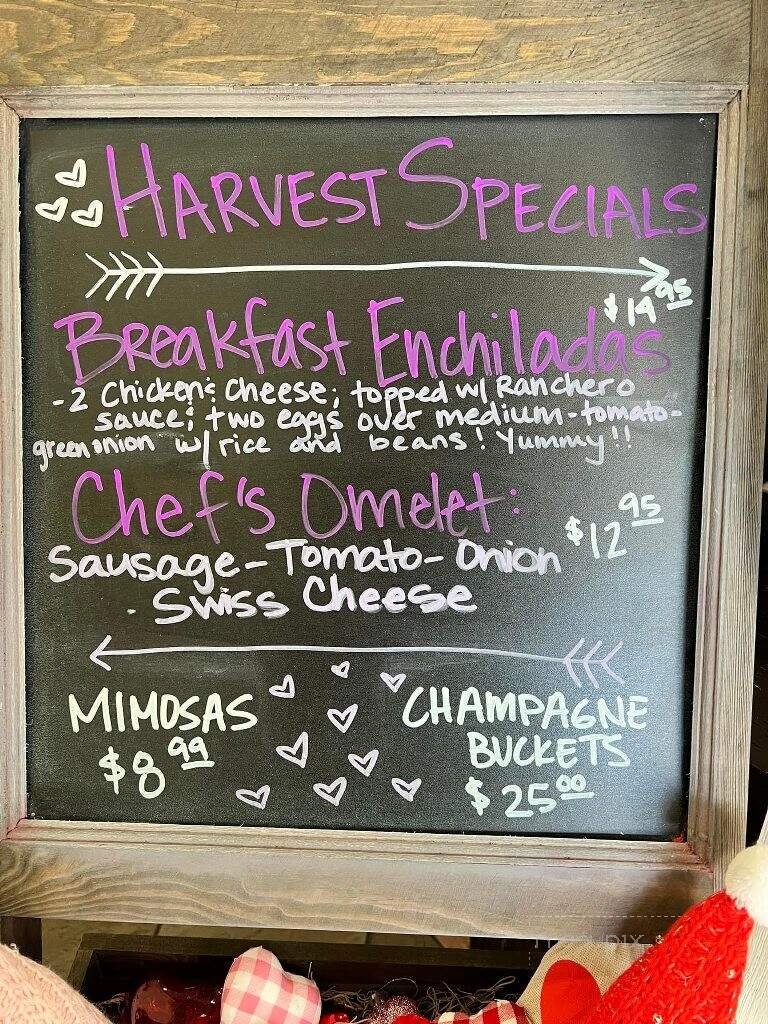 HARVEST SPECIALS
$14 95
Breakfast Enchiladas
-2 Chicken & Cheese; topped w/ Ranchero
sauce; two eggs over medium-tomato-
green onion w/ rice and beans! Yummy!!
Chef's Omelet:
$12 95
Sausage-Tomato-Onion
Swiss Cheese
MIMOSAS
$8 99
CHAMPAGNE
BUCKETS
$25 00